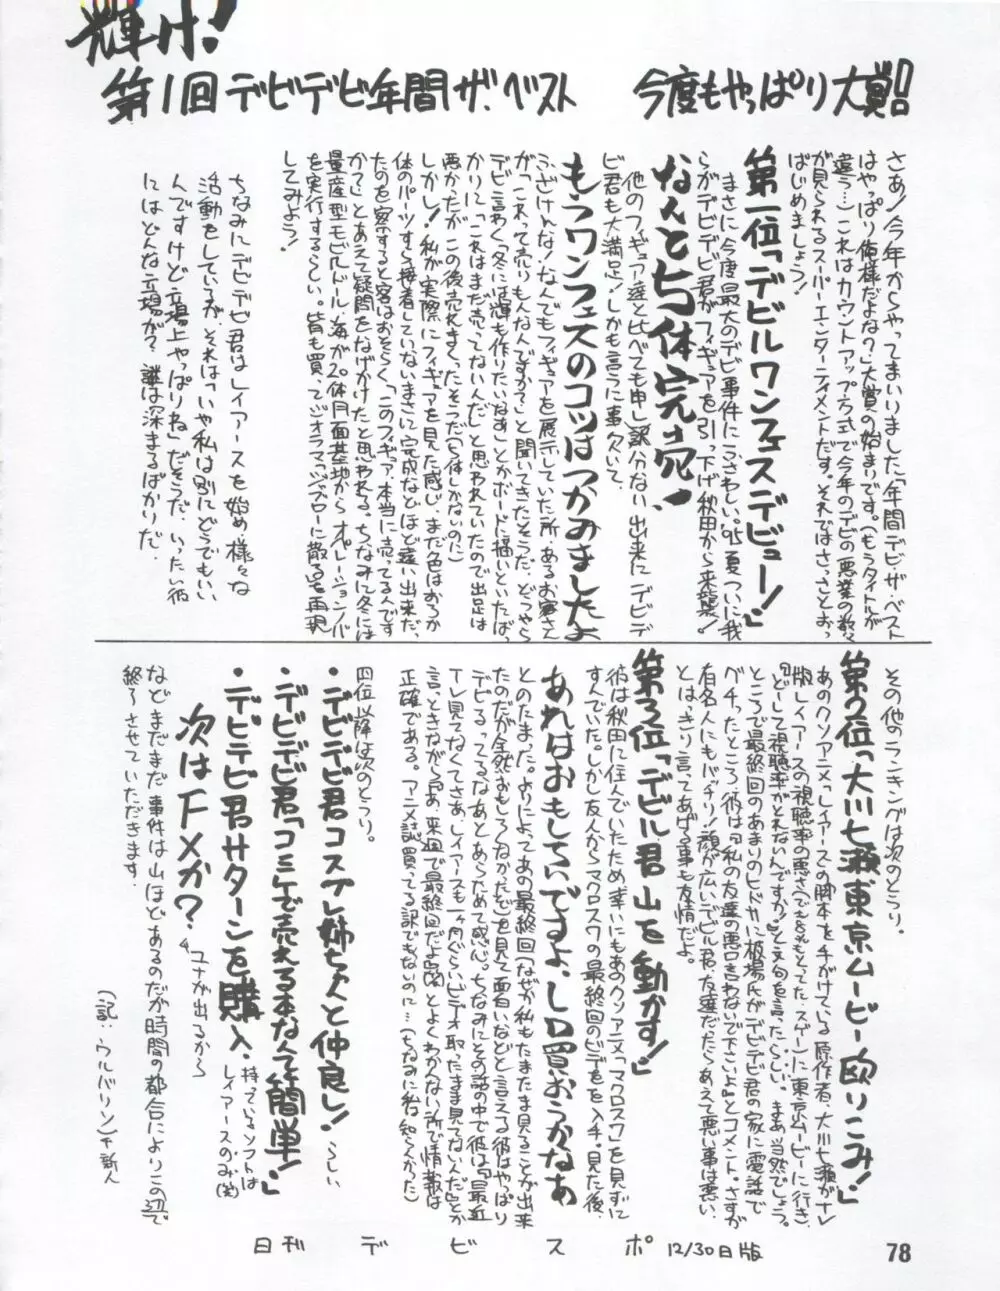 輝け!
第1回デビデビ年間ザ・ベスト 今度もやっぱり大賞!!
さあ!今年からやってまいりました「年間デビ・ザ・ベスト
はやっぱり俺様だよな?」大賞の始まりです。(もうタイトルが
違う…)これはカウントアップ方式で今年のデビの悪業の数々
が見られるスーパーエンターティメントだす。それではさっさとおっ
ぱじめましょう!
第一位「デビルワンフェスデビュー!」
まさに今度最大のデビ事件にふさわしい。'95夏ついに我
らがデビデビ君がフィギュアを引っ下げ秋田から来襲!
なんと5体完売!
他のフィギュア達と比べても申し訳分ない出来にデビデ
ビ君も大満足!しかも言うに事欠いて、
もうワンフェスのコツはつかみましたよ
ふざけんな!なんでもフィギュアを展示していた所、あるお客さん
が「これって売りもんなんですか?」と聞いてきたそうだ。どうやら
デビ言わく「冬には輝も作りたいなぁ」とかボードに描いといたばっ
かりに「これはまだ売ってないんだ」と思われていたので出足は
悪かったがこの後売れまくったそうだ(5体しかないのに)
しかし!私が実際にフィギュアを見た感じ、まだ色はおろか
体のパーツすら接着していない、まさに完成などほど遠い出来だっ
たのを察すると客はおそらく「このフィギュア本当に売ってるんです
か?」とあえて疑問をなげかけたと思われる。ちなみに冬には
量産型モビルドール・海が20体月面基地からオペレーションバ
を実行するらしい。皆も買ってジオラマ「ジャブローに散る」を再現
してみよう!
ちなみにデビデビ君はレイアースを始め様々な
活動をしているが、それは「いや私は別にどうでもいい
んですけど立場上やっぱりね」だそうだ。いったい彼
にはどんな立場が?謎は深まるばかりだ.
その他のランキングは次のとうり。
第2位「大川七瀬東京ムービー殴りこみ!」
あのクソアニメ「レイアース」の脚本を手がけている原作者・大川七瀬がテレ
版レイアースの視聴率の悪さに東京ムービーに行き、
『どーして視聴率がとれないんですか!』と文句を言ったらしい。まあ当然でしょう。
ところで最終回のあまりのヒドさに板場氏がデビデビ君の家に電話で
グチったところ、彼は『私の友達の悪口言わないで下さいよ』とコメント。さすが
有名人にもバッチリ顔が広いデビル君。友達だったらあえて悪い事は悪い、
とはっきり言ってあげる事も友情だよ。
第3位「デビル君山を動かす!」
彼は秋田に住んでいたため幸いにもあのクソアニメ「マクロス7」を見ずに
すんでいた。しかし友人からマクロス7の最終回のビデオを入手、見た後、
あれはおもしろいですよ。LD買おうかなぁ
とのたまった。よりによってあの最終回(なぜか私もたまたま見ることが出来
たのだが全然おもしろくねかったぞ)を見て面白いなどと言える彼はやっぱり
デビるってるなあとあらためて感心。ちなみにその話の中で彼は『最近
TV見てなくてさあ。レイアースも一ヵ月ぐらいビデオ取ったまま見てないんだ』とか
言っときながら『あ、来週で最終回だよ(笑)』とよくわかない所で情報は
正確である。アニメ誌買ってる訳でもないのに…(ちなみに私は知らんかった)
四位以降は次のとうり。
・デビデビ君コスプレ姉ちゃんと仲良し! らしい
・デビデビ君「コミケで売れる本なんて簡単!」
・デビデビ君サターンを購入. 持っているソフトはレイアースのみ(笑)
次はFXか? ユナが出るから
などまだまだ事件は山ほどあるのだが時間の都合によりこの辺で
終らさせていただきます.
(記:ウルバリン)千新人
日刊デビスポ 12/30日版
78